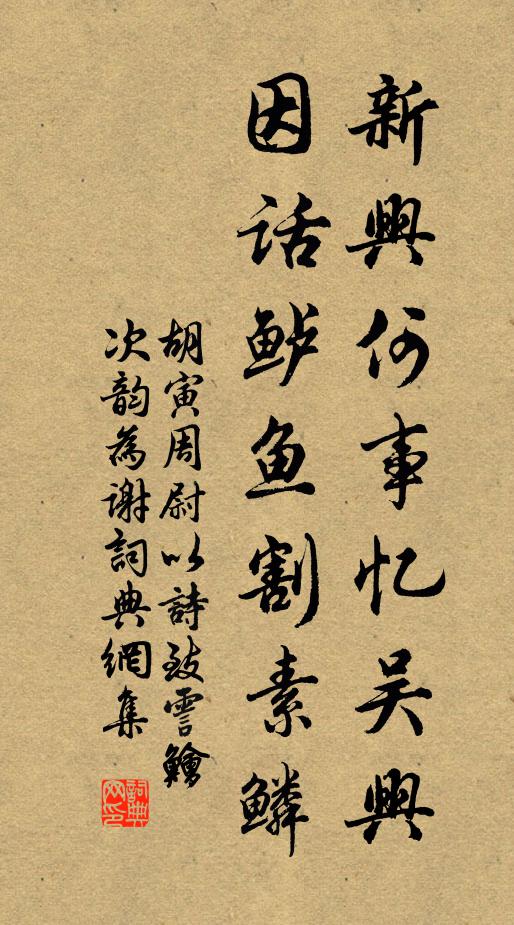 新興何事忆吴興
因话鲈鱼割素鳞
胡寅周尉以詩致雪鱠
次韵為谢詞典網集
詞典网印